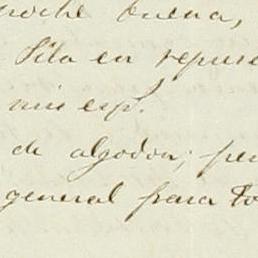 noche buena,
Pila en repuse
mis esp.
de algodon; per
general para to